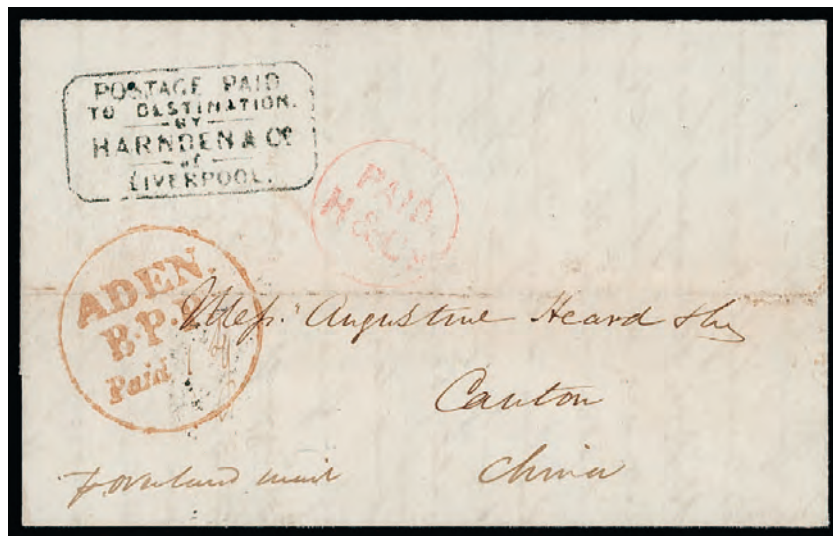 POSTAGE PAID
TO DESTINATION.
BY
HARNDEN & Co
OF
LIVERPOOL.
PAID
H & Co
ADEN.
B.P.
Paid
Mess. Augustine Heard & Co
Canton
China
p overland mail